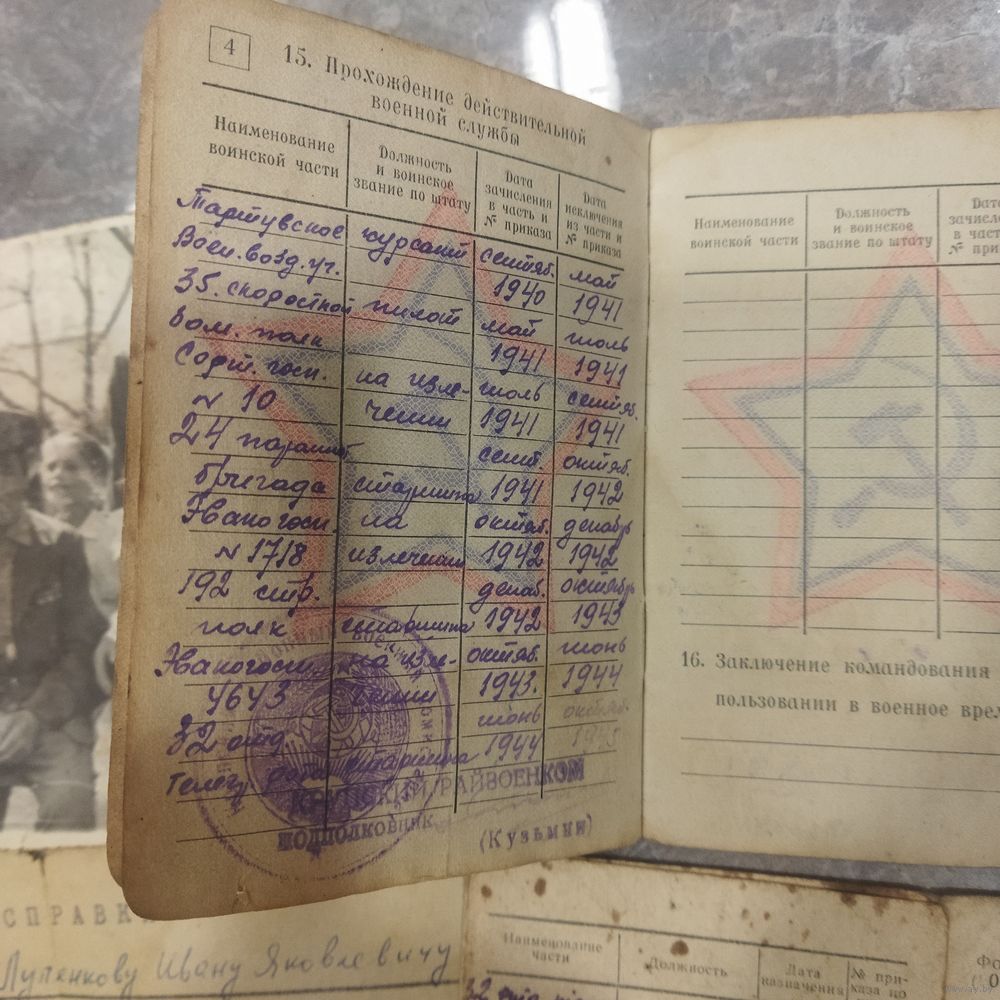 4
15. Прохождение действительной
военной службы
Наименование
воинской части
Должность
и воинское
звание по штату
Дата
зачисления
в часть и
№ приказа
Дата
исключения
из части и
№ приказа
Тартуское курсант сентяб. май
Воен. возд. уч. 1940 1941
35. скоростной пилот май июль
бом. полк 1941 1941
Сорт. госп. на изле- июль сентяб.
№ 10 чении 1941 1941
24 сент. октяб.
бригада старшина 1941 1942
Эвакогосп. на октяб. декабрь
№ 1718 излечении 1942 1942
192 стр. декаб. октябрь
полк старшина 1942 1943
Эвакогосп. на изле- октяб. июнь
4643 чении 1943. 1944
32 отд. июнь октяб.
телегр. рота старшина 1944 1945
РАЙВОЕНКОМ
ПОДПОЛКОВНИК
(Кузьмин)
Наименование
воинской части
Должность
и воинское
звание по штату
Дата
зачисле
в част
№ при
16. Заключение командования
пользовании в военное врем
СПРАВК
Лупенкову Ивану Яковлевичу
Наименование
части
Должность
Дата
назначения
№ при-
каза по